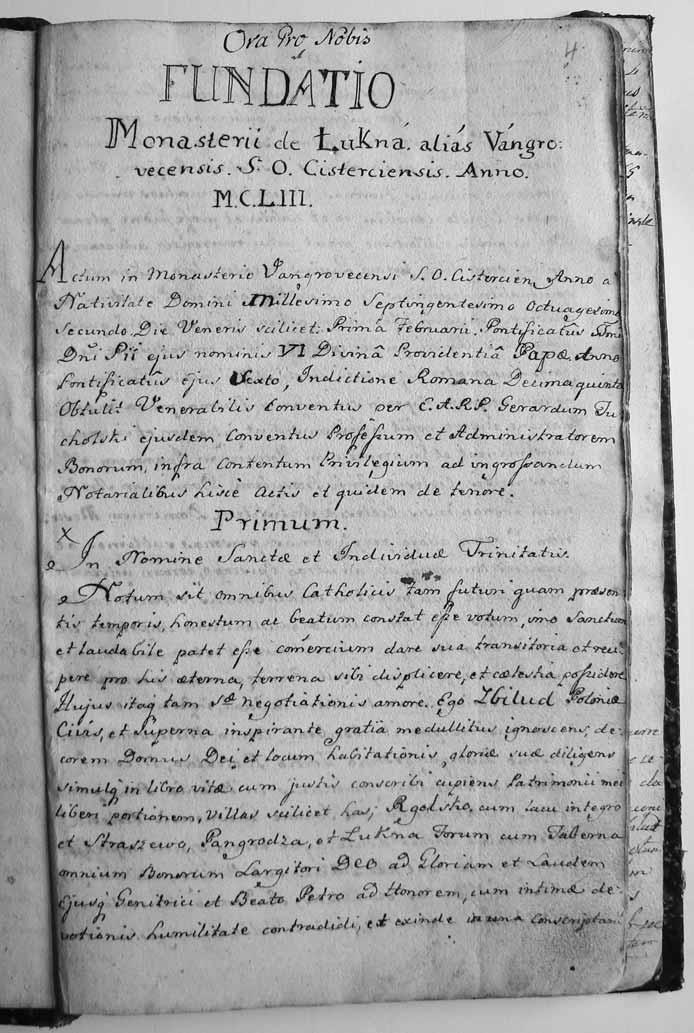 Ora Pro Nobis
4
FUNDATIO
Monasterii de Łukná. aliás Vángro:
vecensis. S. O. Cisterciensis. Anno.
M.C.LIII.
Actum in Monasterio Vangrovecensi S. O. Cistercien Anno a
Nativitate Domini Millesimo Septingentesimo Octuagesimo
Secundo. Die Veneris scilicet: Prima Februarii. Pontificatûs
Dn̄i Pii ejus nominis VI Divinâ Providentiâ Papæ, Anno
Pontificatûs ejus Sexto, Indictione Romana Decima quinta
Obtulit Venerabilis Conventus per E. A. R. P. Gerardum Tu
cholski ejusdem Conventus Professum et Administratorem
Bonorum, infra Contentum Privilegium ad ingrossandum
Notarialibus hisce Actis et quidem de tenore.
Primum.
x
In Nomine Sanctæ et Individuæ Trinitatis.
Notum sit omnibus Catholicis tam futuri quam præsen
tis temporis, honestum ac beatum constat esse votum, imo Sanctum
et laudabile patet esse comercium dare sua transitoria et reci
pere pro his æterna, terrena sibi displicere, et cælestia possidere
Hujus itaq tam Sæ negotiationis amore. Ego Zbilud Poloniæ
Civis, et Superna inspirante gratia medullitus ignoscens, de-
corem Domus Dei et locum habitationis gloriæ suæ diligens
simulq in libro vitæ cum justis conscribi cupiens Patrimonii mei
liberi portionem, villas scilicet has; Rgolsko. cum lacu integro
et Straszewo, Pangrodza, et Lukna Forum cum Taberna
omnium Bonorum Largitori DEO ad Gloriam et Laudem
Ejusq Genitrici et Beato Petro ad Honorem, cum intimæ de-
votionis humilitate contradidi, et exinde in una Conscriptam